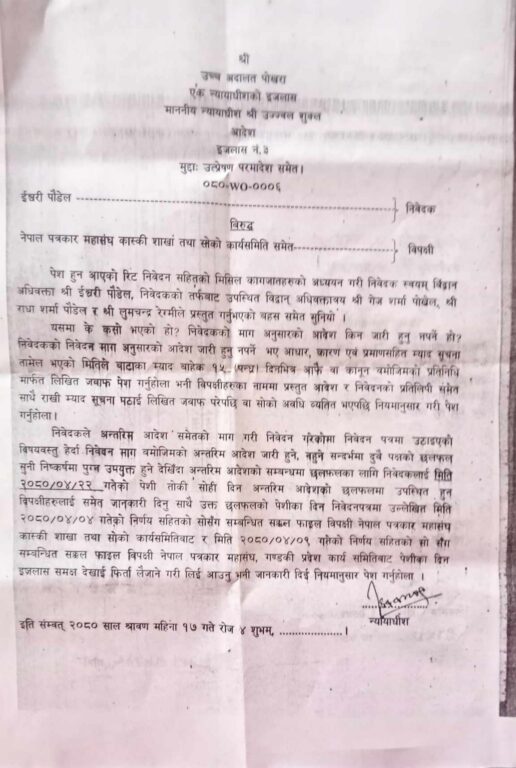 श्री
उच्च अदालत पोखरा
एक न्यायाधीशको इजलास
माननीय न्यायाधीश श्री उज्ज्वल शुक्ल
आदेश
इजलास नं.३
मुद्दाः उत्प्रेषण परमादेश समेत।
०८०-WO-०००६
ईश्वरी पौडेल ---------- निवेदक
विरुद्ध
नेपाल पत्रकार महासंघ कास्की शाखा तथा सोको कार्यसमिति समेत---------- विपक्षी
पेश हुन आएको रिट निवेदन सहितको मिसिल कागजातहरुको अध्ययन गरी निवेदक स्वयम् विद्वान
अधिवक्ता श्री ईश्वरी पौडेल, निवेदकको तर्फबाट उपस्थित विद्वान् अधिवक्तात्रय श्री रोज शर्मा पोखेल, श्री
राधा शर्मा पौडेल र श्री लुमचन्द्र रेग्मीले प्रस्तुत गर्नुभएको बहस समेत सुनियो ।
यसमा के कसो भएको हो? निवेदकको माग अनुसारको आदेश किन जारी हुनु नपर्ने हो?
निवेदकको निवेदन माग अनुसारको आदेश जारी हुनु नपर्ने भए आधार, कारण एवं प्रमाणसहित म्याद सूचना
तामेल भएको मितिले बाटाका म्याद बाहेक १५ (पन्ध्र) दिनभित्र आफै वा कानून बमोजिमको प्रतिनिधि
मार्फत लिखित जवाफ पेश गर्नुहोला भनी विपक्षीहरुका नाममा प्रस्तुत आदेश र निवेदनको प्रतिलिपी समेत
साथै राखी म्याद सूचना पठाई लिखित जवाफ परेपछि वा सोको अवधि व्यतित भएपछि नियमानुसार गरी पेश
गर्नुहोला।
निवेदकले अन्तरिम आदेश समेतको माग गरी निवेदन गरेकोमा निवेदन पत्रमा उठाइएको
विषयवस्तु हेर्दा निवेदन माग बमोजिमको अन्तरिम आदेश जारी हुने, नहुने सन्दर्भमा दुवै पक्षको छलफल
सुनी निष्कर्षमा पुग्न उपयुक्त हुने देखिँदा अन्तरिम आदेशको सम्वन्धमा छलफलका लागि निवेदकलाई मिति
२०८०/०४/२२ गतेको पेशी तोकी सोही दिन अन्तरिम आदेशको छलफलमा उपस्थित हुन
विपक्षीहरुलाई समेत जानकारी दिनु साथै उक्त छलफलको पेशीका दिन निवेदनपत्रमा उल्लेखित मिति
२०८०/०४/०४ गतेको निर्णय सहितको सोसँग सम्वन्धित सक्कल फाइल विपक्षी नेपाल पत्रकार महासंघ
कास्की शाखा तथा सोको कार्यसमितिबाट र मिति २०८०/०४/०९ गतेको निर्णय सहितको सो सँग
सम्वन्धित सक्कल फाइल विपक्षी नेपाल पत्रकार महासंघ, गण्डकी प्रदेश कार्य समितिबाट पेशीका दिन
इजलास समक्ष देखाई फिर्ता लैजाने गरी लिई आउनु भनी जानकारी दिई नियमानुसार पेश गर्नुहोला ।
न्यायाधीश
इति सम्वत् २०८० साल श्रावण महिना १७ गते रोज ४ शुभम्, ...................।